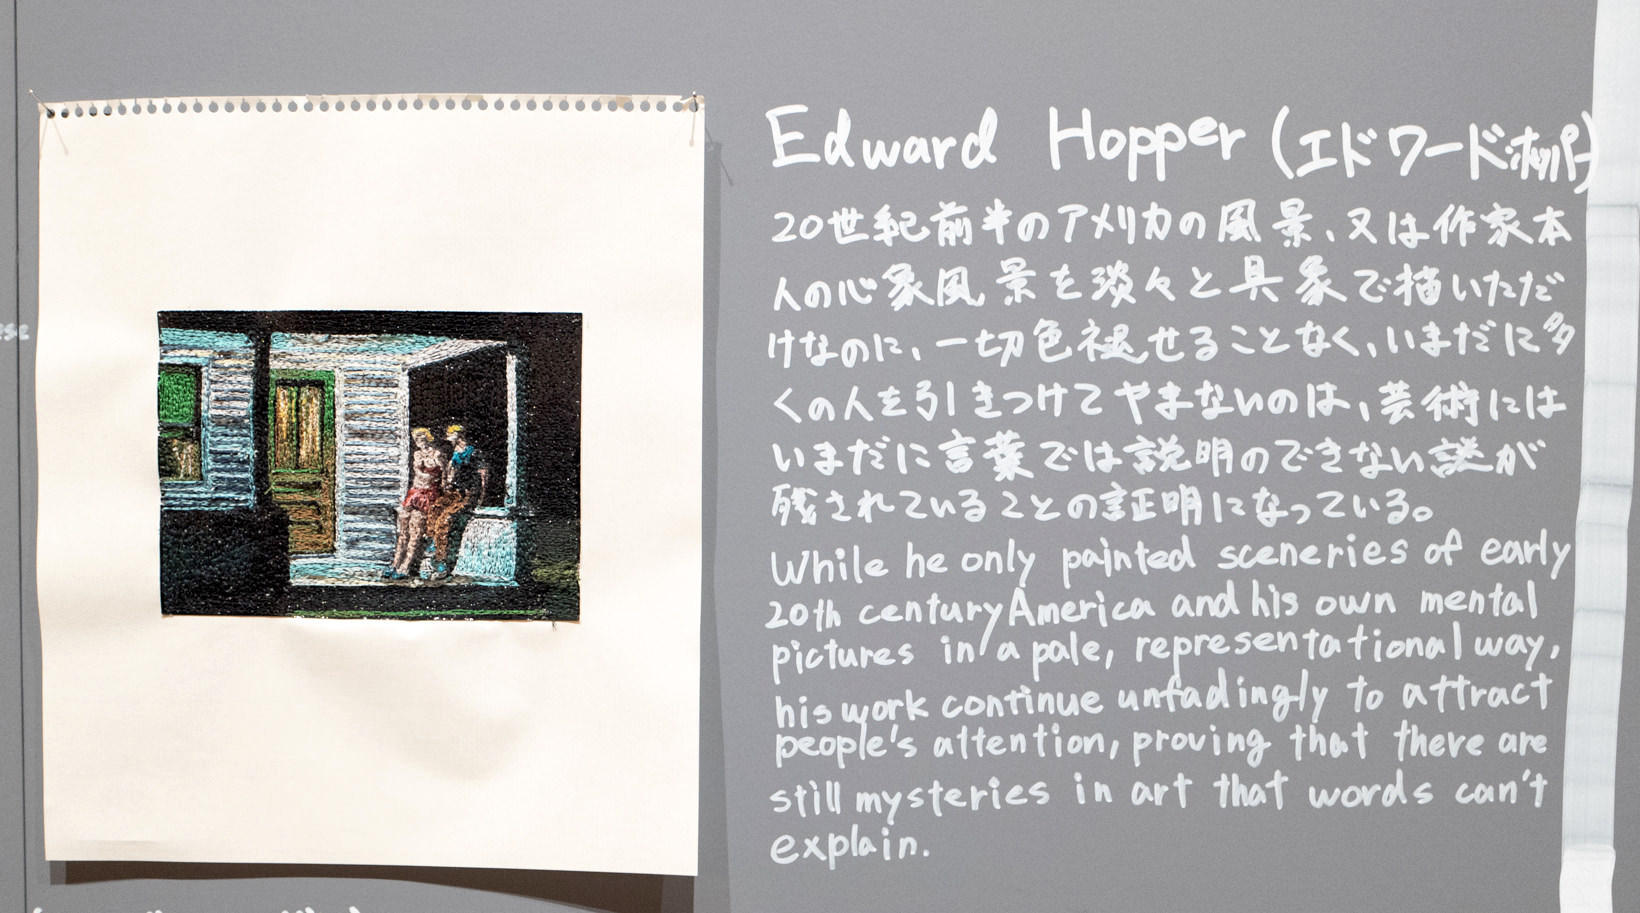 Edward Hopper (エドワード・ホッパー)
20世紀前半のアメリカの風景、又は作家本
人の心象風景を淡々と具象で描いただ
けなのに、一切色褪せることなく、いまだに多
くの人を引きつけてやまないのは、芸術には
いまだに言葉では説明のできない謎が
残されていることの証明になっている。
While he only painted sceneries of early
20th century America and his own mental
pictures in a pale, representational way,
his work continue unfadingly to attract
people's attention, proving that there are
still mysteries in art that words can't
explain.